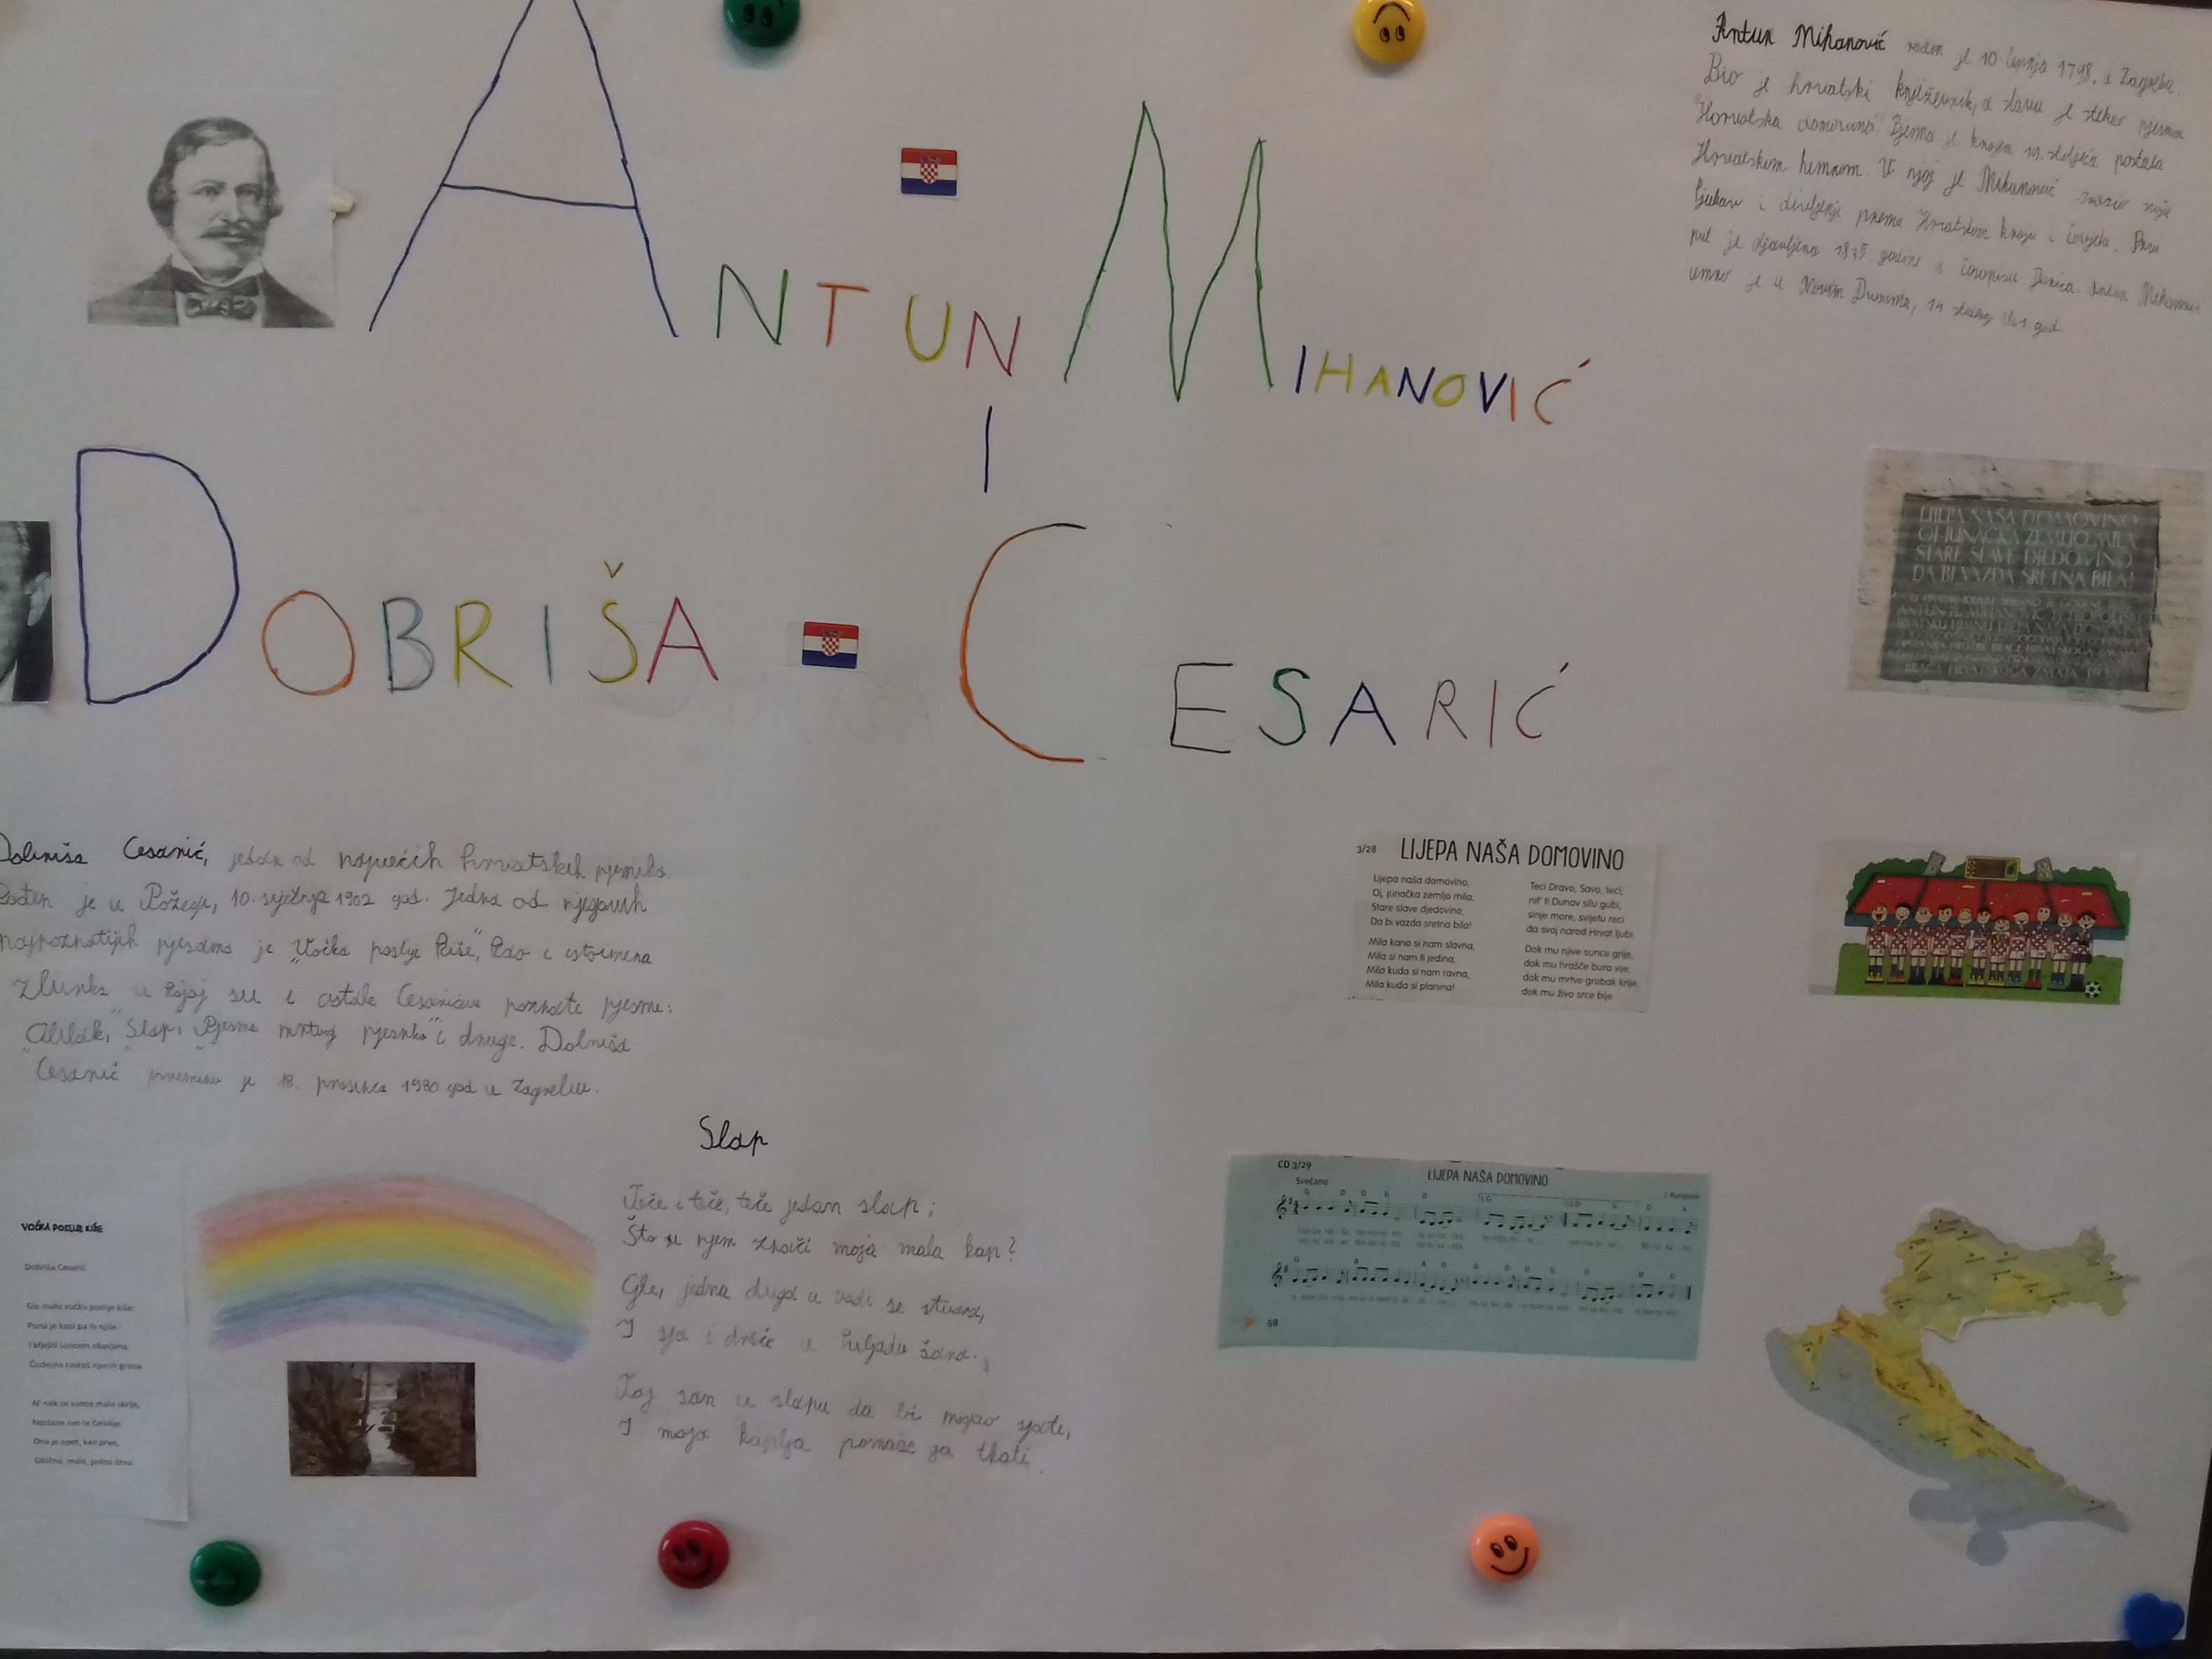 ANTUN MIHANOVIĆ
I
DOBRIŠA CESARIĆ
Antun Mihanović rođen je 10 lipnja 1798. u Zagrebu.
Bio je hrvatski književnik, a slavu je stekao pjesmom
"Horvatska domovina". Pjesma je krajem 19. stoljeća postala
Hrvatskom himnom. U njoj je Mihanović izrazio svoju
ljubav i divljenje prema Hrvatskom kraju i čovjeku. Prvi
put je objavljena 1835 godine u časopisu Danica. Antun Mihanović
umro je u Novim Dvorima, 14 studenog 1861 god.
LIJEPA NAŠA DOMOVINO
OJ JUNAČKA ZEMLJO MILA
STARE SLAVE DJEDOVINO
DA BI VAZDA SRETNA BILA!
Dobriša Cesarić, jedan od najvećih hrvatskih pjesnika
Rođen je u Požegi, 10. siječnja 1902 god. Jedna od njegovih
najpoznatijih pjesama je "Voćka poslije kiše", kao i istoimena
zbirka u kojoj su i ostale Cesarićeve poznate pjesme:
"Oblak", "Slap", "Pjesma mrtvog pjesnika" i druge. Dobriša
Cesarić preminuo je 18. prosinca 1980 god u Zagrebu.
3/28 LIJEPA NAŠA DOMOVINO
Lijepa naša domovino,
Oj, junačka zemljo mila,
Stare slave djedovino,
Da bi vazda sretna bila!
Mila kano si nam slavna,
Mila si nam ti jedina,
Mila kuda si nam ravna,
Mila kuda si planina!
Teci Dravo, Savo, teci,
nit' ti Dunav silu gubi,
sinje more, svijetu reci
da svoj narod Hrvat ljubi.
Dok mu njive sunce grije,
dok mu hrašće bura vije,
dok mu mrtve grobak krije,
dok mu živo srce bije.
VOĆKA POSLIJE KIŠE
Dobriša Cesarić
Gle malu voćku poslije kiše:
Puna je kapi pa ih njiše
I blješti suncem obasjana,
Čudesna raskoš njenih grana.
Al' nek se sunce malo skrije,
Nestane sve te čarolije.
Ona je opet, kao prvo,
Obično, malo, jadno drvo.
Slap
Teče i teče, teče jedan slap;
Što u njem znači moja mala kap?
Gle, jedna duga u vodi se stvara,
I sja i dršće u hiljadu šara.
Taj san u slapu da bi mogao sjati,
I moja kaplja pomaže ga tkati.
CD 3/29
LIJEPA NAŠA DOMOVINO
Svečano
J. Runjanin
58